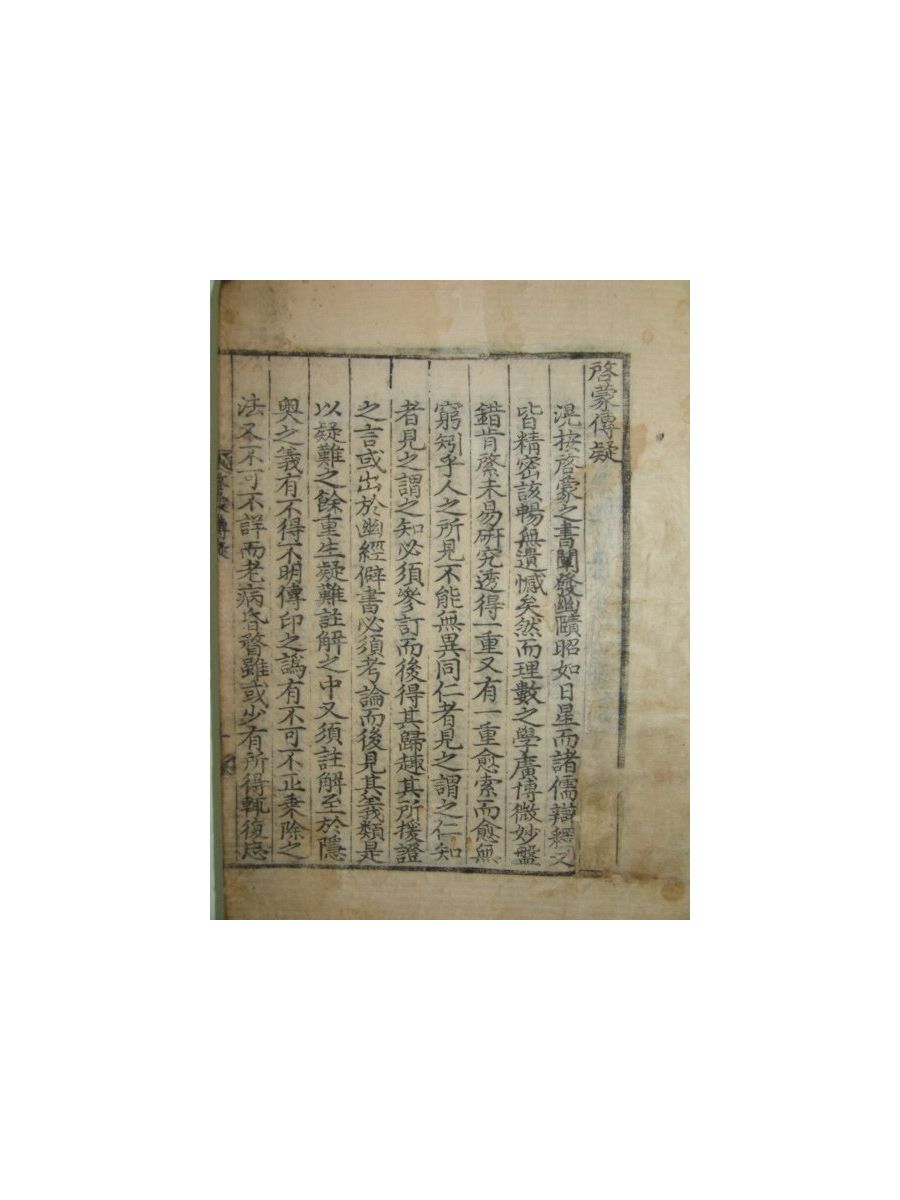 啓蒙傳疑
滉按啓蒙之書闡發幽賾昭如日星而諸儒辯釋又
皆精密該暢無遺憾矣然而理數之學廣博微妙盤
錯肯綮未易硏究透得一重又有一重愈索而愈無
窮矧乎人之所見不能無異同仁者見之謂之仁知
者見之謂之知必須參訂而後得其歸趣其所援證
之言或出於幽經僻書必須考論而後見其義類是
以疑難之餘重生疑難註解之中又須註解至於隱
奧之義有不得不明傳印之譌有不可不正乗除之
法又不可不詳而老病昏瞀雖或少有所得輒復忘